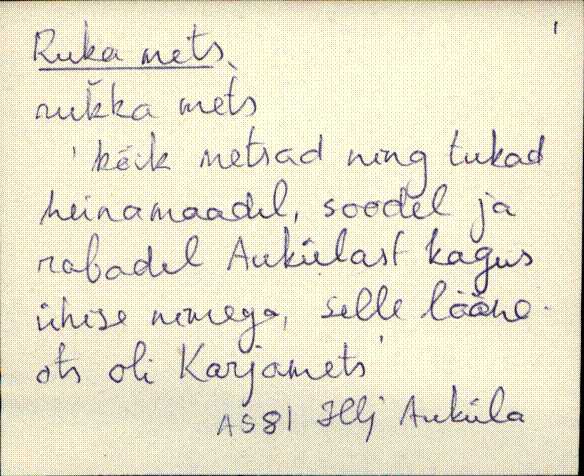 1
Ruka mets,
rukka mets
'kõik metsad ning tukad
heinamaadel, soodel ja
rabadel Aukülast kagus
ühise nimega, selle lääne-
ots oli Karjamets'
AS81 Hlj Auküla